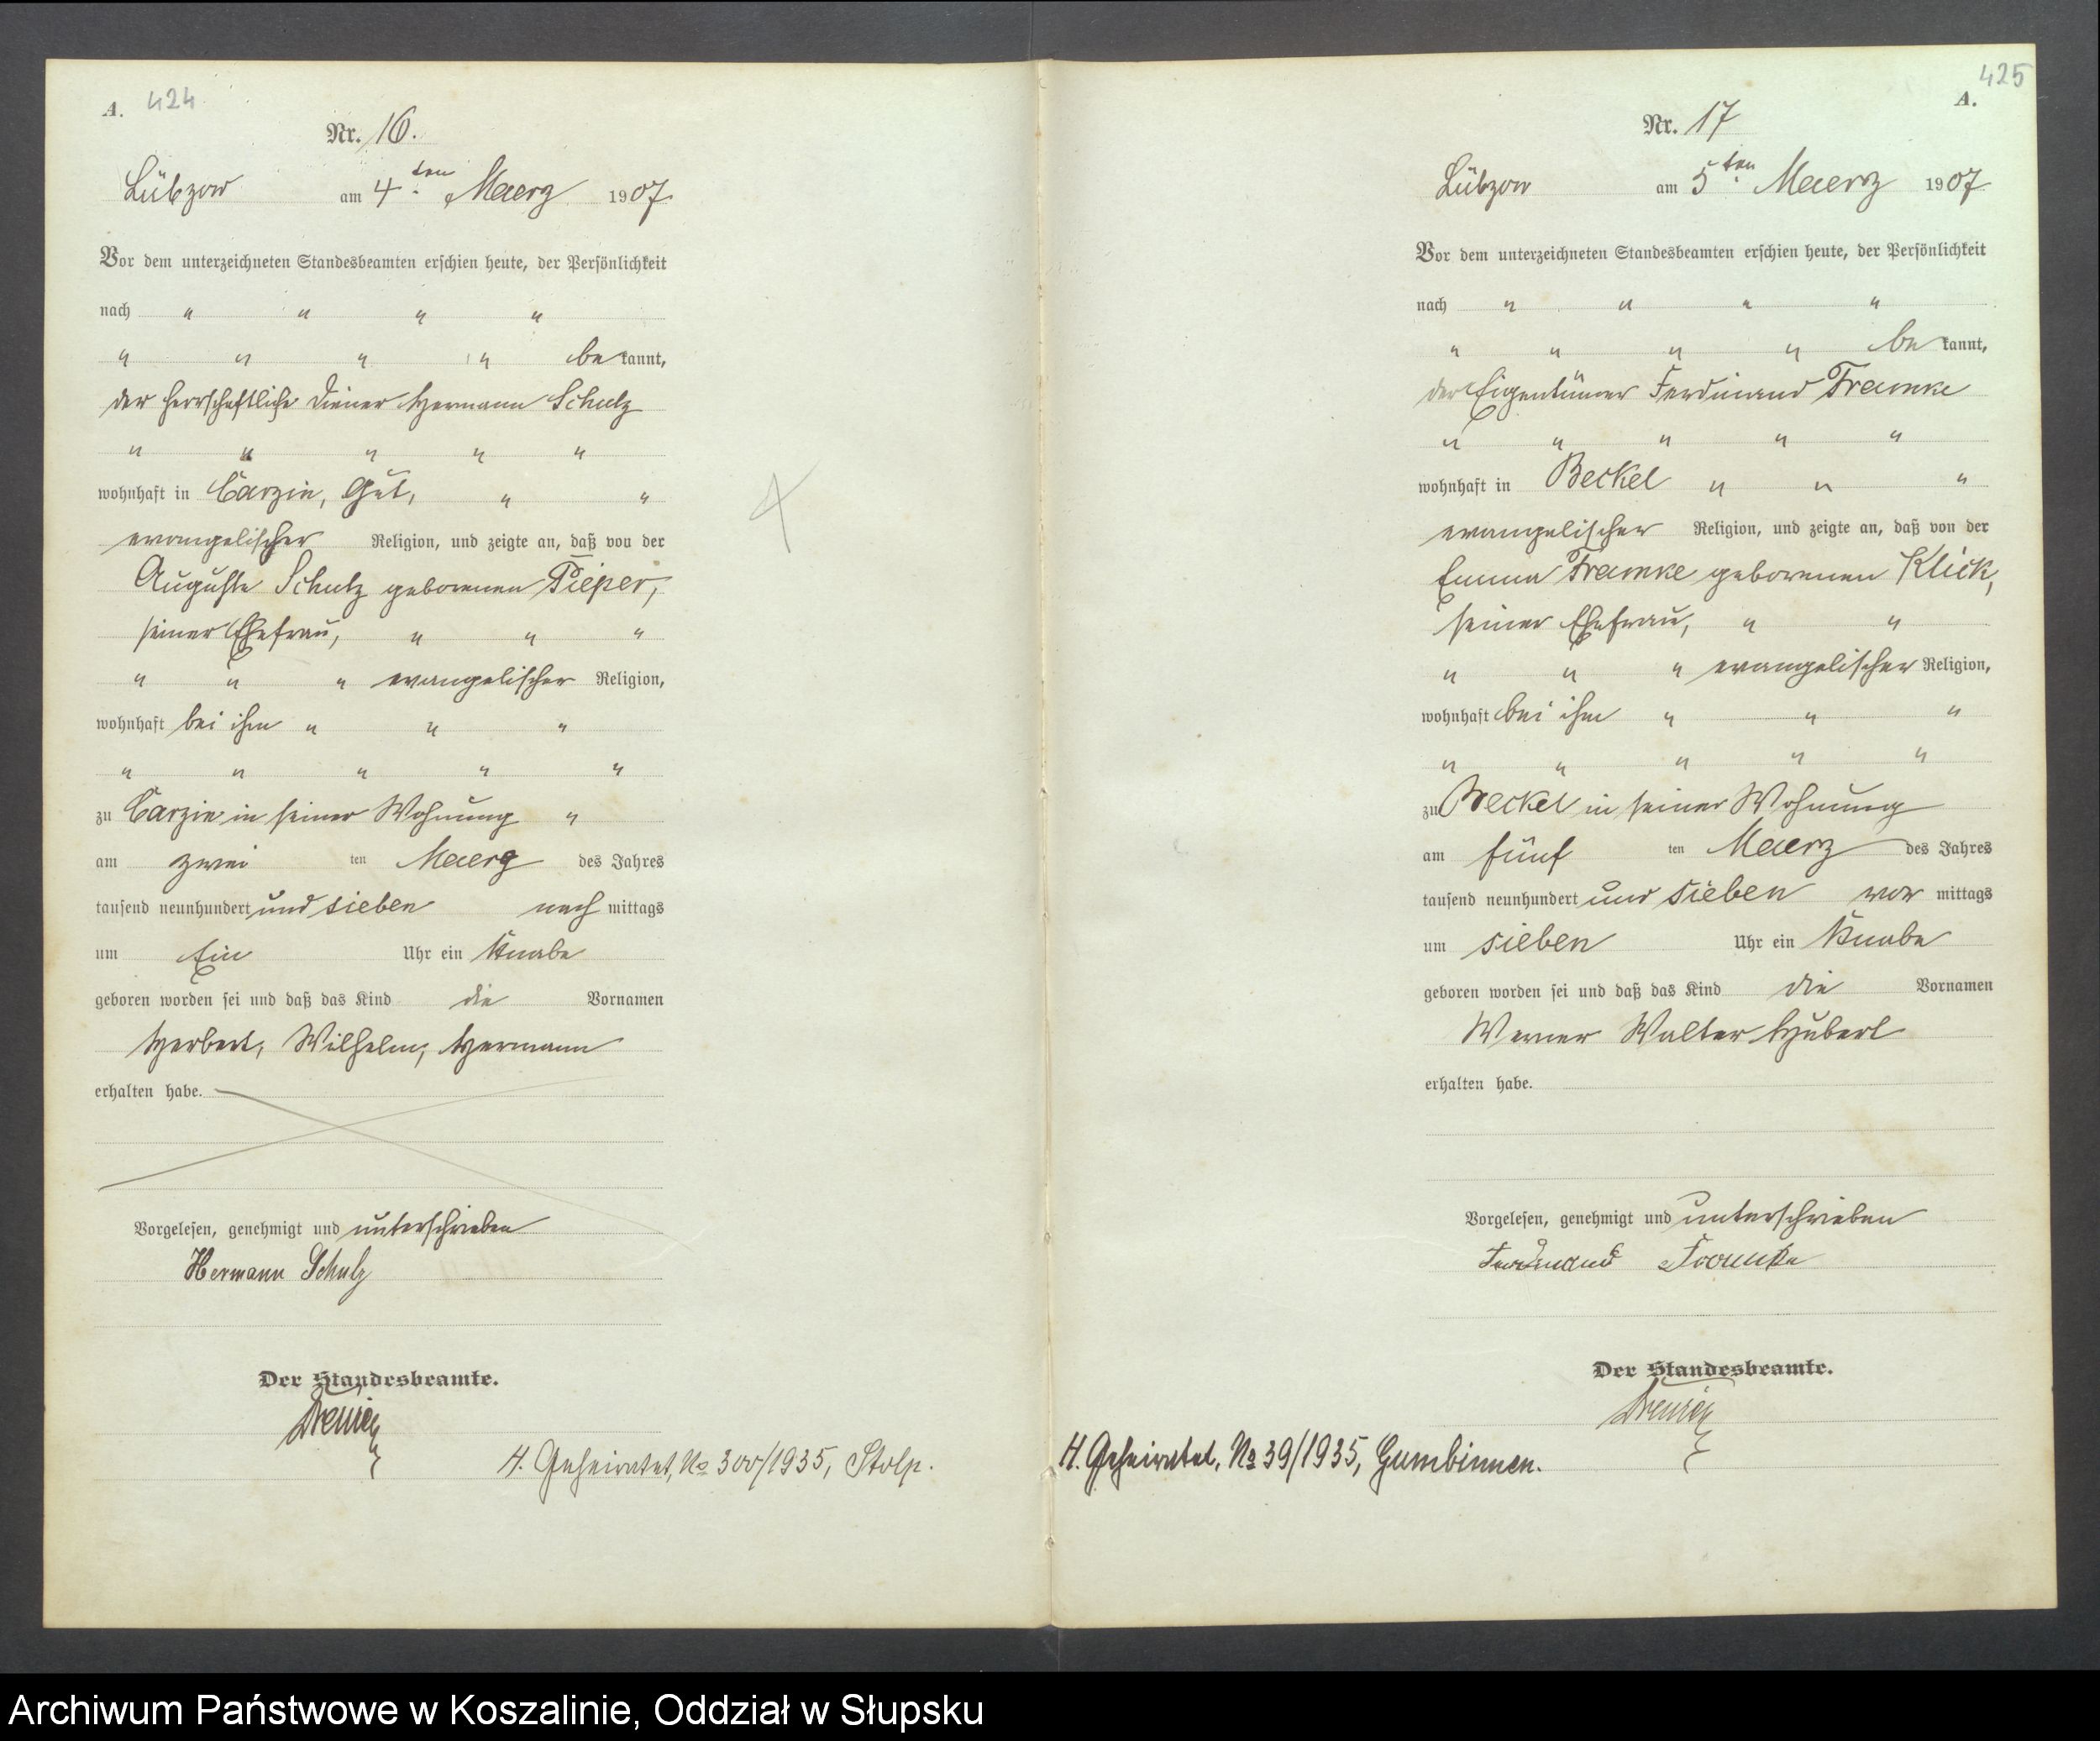 A. 424
Nr. 16.
Lübzow am 4ten Maerz 1907
Vor dem unterzeichneten Standesbeamten erschien heute, der Persönlichkeit
nach " " " "
" " " " be kannt,
der herrschaftliche Diener Hermann Schulz
" " " " "
wohnhaft in Carzin, Gut, " "
evangelischer Religion, und zeigte an, daß von der
Auguste Schulz geborenen Pieper,
seiner Ehefrau, " " "
" " " evangelischer Religion,
wohnhaft bei ihm " " "
" " " " "
zu Carzin in seiner Wohnung "
am zwei ten Maerz des Jahres
tausend neunhundert und sieben nach mittags
um Ein Uhr ein Knabe
geboren worden sei und daß das Kind die Vornamen
Herbert, Wilhelm, Hermann
erhalten habe.
Vorgelesen, genehmigt und unterschrieben
Hermann Schulz
Der Standesbeamte.
H. Geheiratet, No 300/1935, Stolp.
425
A.
Nr. 17
Lübzow am 5ten Maerz 1907
Vor dem unterzeichneten Standesbeamten erschien heute, der Persönlichkeit
nach " " " "
" " " " be kannt,
der Eigentümer Ferdinand Framke
" " " " "
wohnhaft in Beckel " " "
evangelischer Religion, und zeigte an, daß von der
Emma Framke geborenen Klick,
seiner Ehefrau, " "
" " " evangelischer Religion,
wohnhaft bei ihm " " "
" " " " "
zu Beckel in seiner Wohnung
am fünf ten Maerz des Jahres
tausend neunhundert und sieben vor mittags
um sieben Uhr ein Knabe
geboren worden sei und daß das Kind die Vornamen
Werner Walter Hubert
erhalten habe.
Vorgelesen, genehmigt und unterschrieben
Ferdinand Framke
Der Standesbeamte.
H. Geheiratet, No 39/1935, Gumbinnen.
Archiwum Państwowe w Koszalinie, Oddział w Słupsku